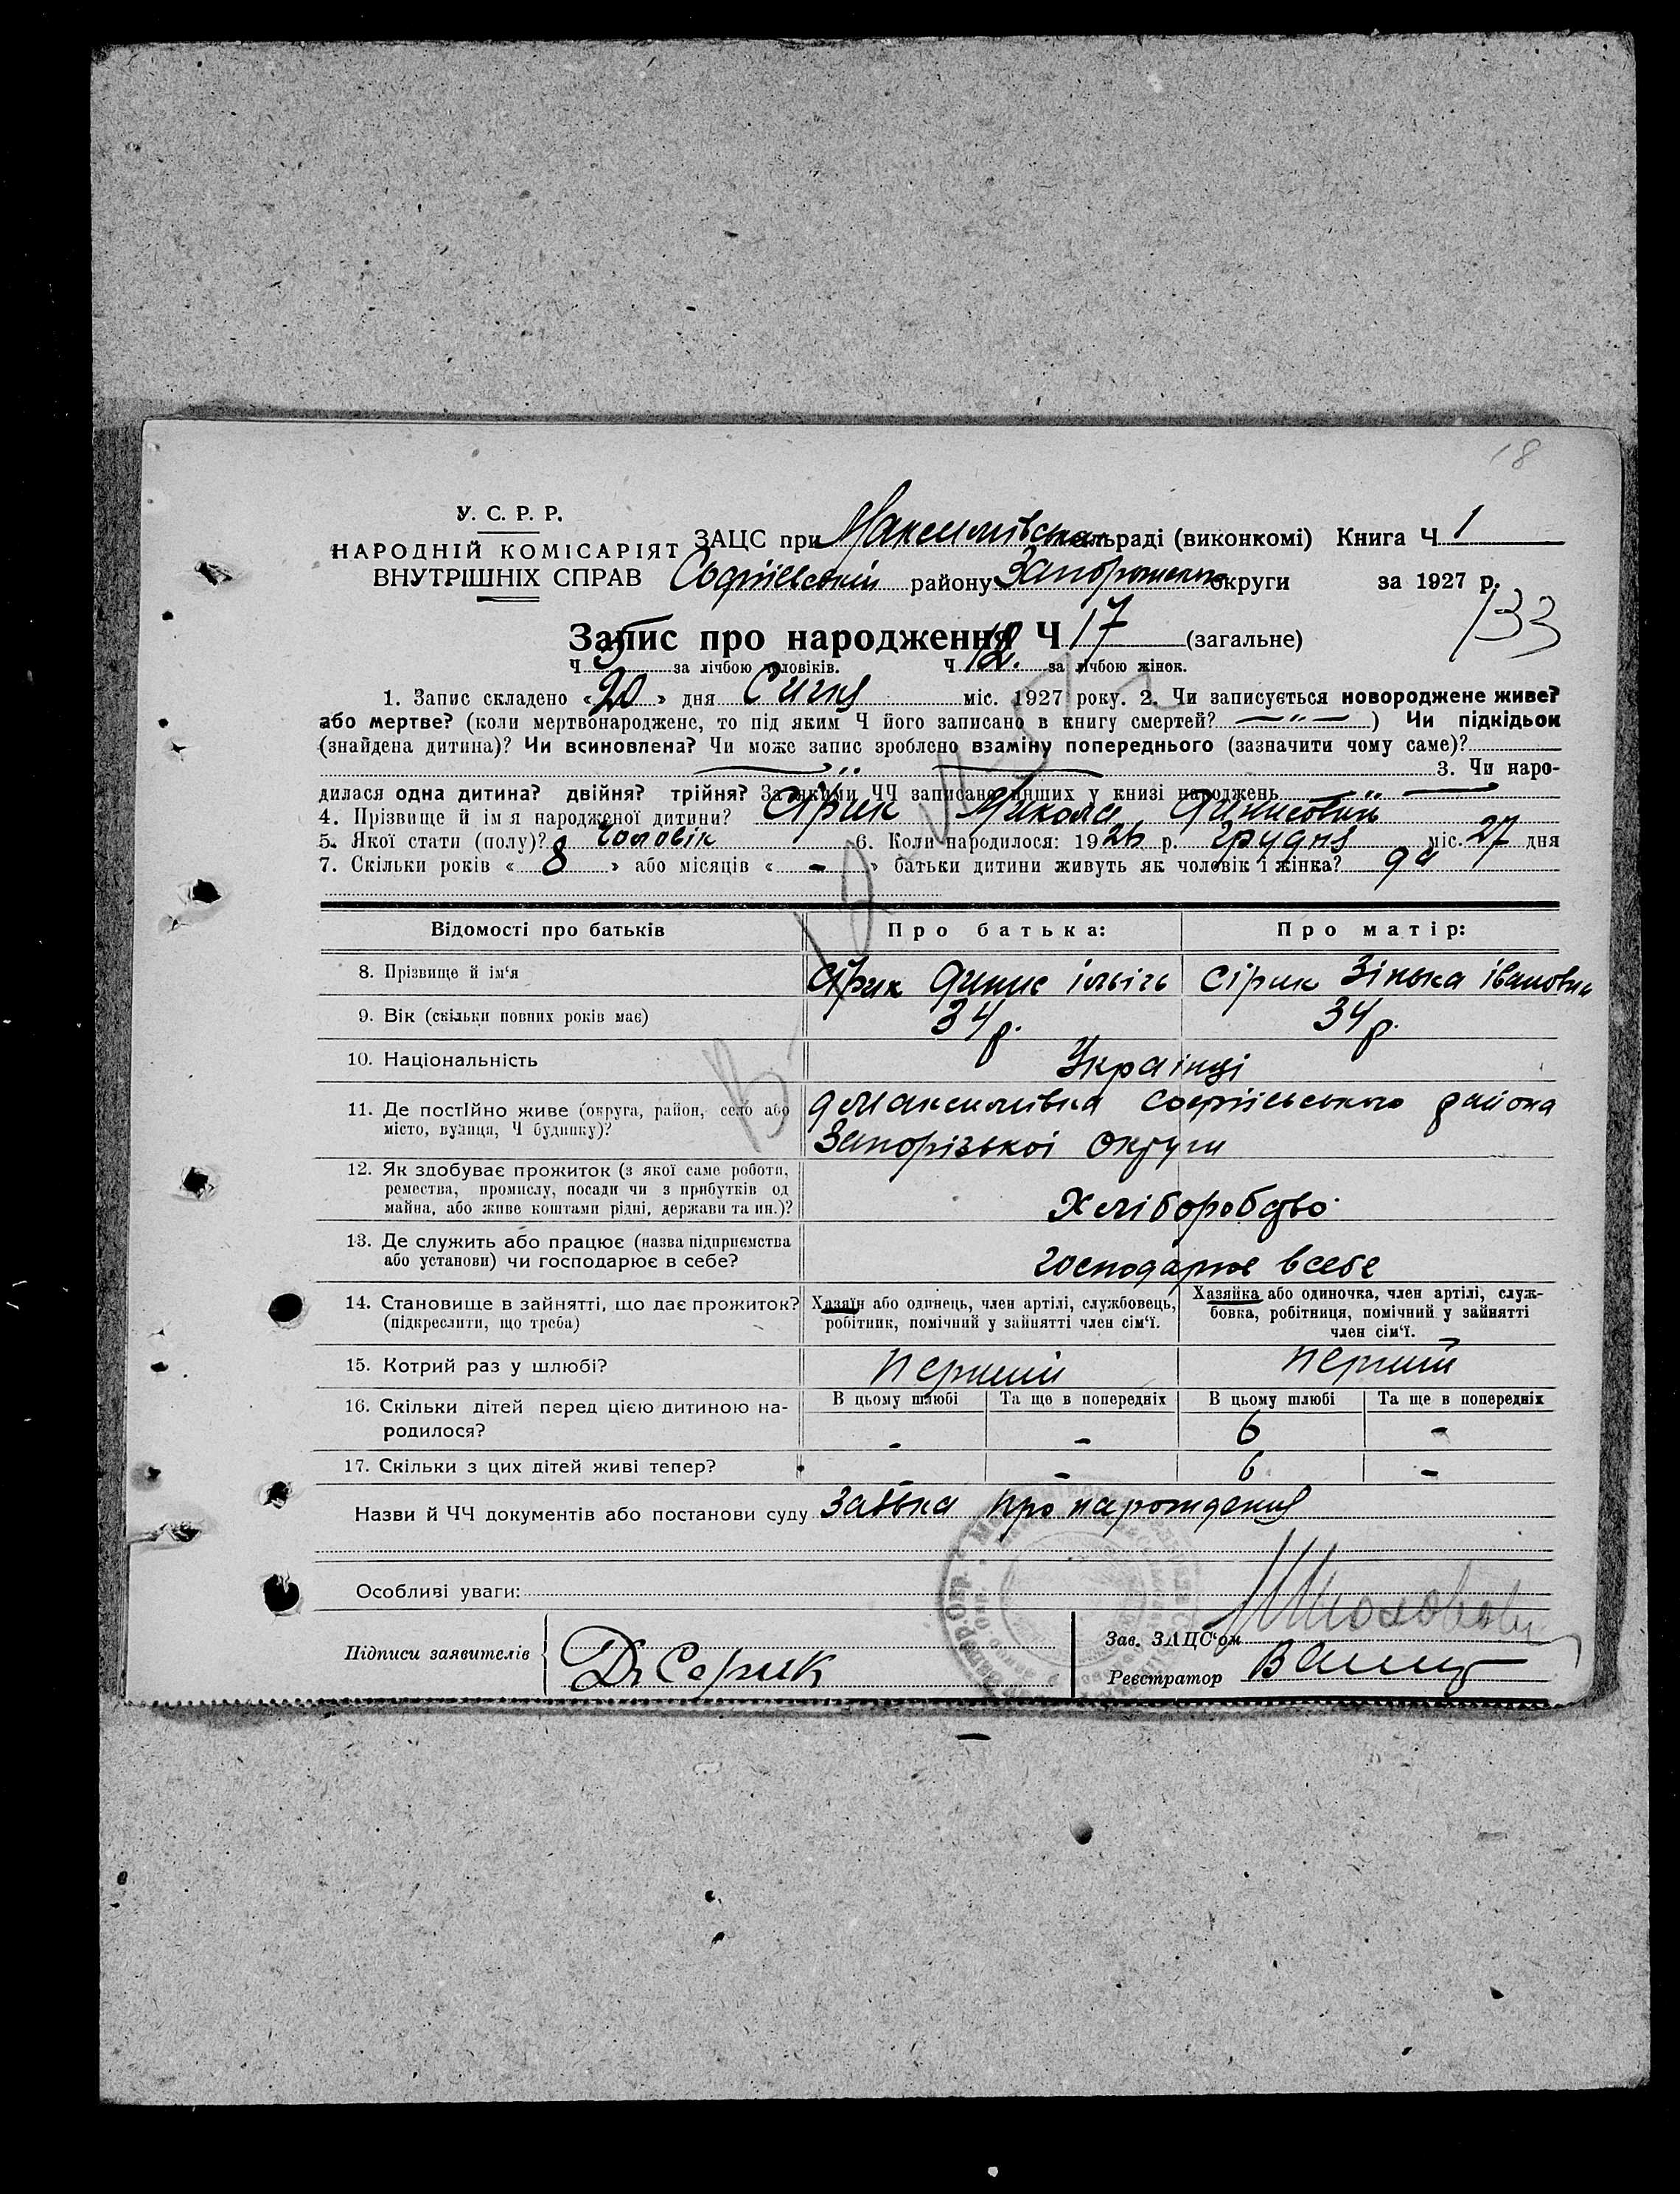 18
У. С. Р. Р.
НАРОДНІЙ КОМІСАРІЯТ
ВНУТРІШНІХ СПРАВ
ЗАЦС при Максимівська раді (виконкомі) Книга Ч 1
Софіївський району Запорожськ округи за 1927 р.
133
Запис про народження Ч 17 (загальне)
Ч 5 за лічбою чоловіків. Ч 12. за лічбою жінок.
1. Запис складено «20» дня Січня міс. 1927 року. 2. Чи записується новороджене живе?
або мертве? (коли мертвонароджене, то під яким Ч його записано в книгу смертей? — „ — ) Чи підкідьок
(знайдена дитина)? Чи всиновлена? Чи може запис зроблено взаміну попереднього (зазначити чому саме)?
— „ — 3. Чи наро-
дилася одна дитина? двійня? трійня? За якими ЧЧ записано инших у книзі народжень — „ —
4. Прізвище й ім я народженої дитини? Сірик Микола Динисовичь
5. Якої стати (полу)? Чоловік 6. Коли народилося: 1926 р. грудня міс. 27 дня
7. Скільки років « 8 » або місяців « - » батьки дитини живуть як чоловік і жінка? да
Відомості про батьків Про батька: Про матір:
8. Прізвище й ім'я Сірик Динис ільічь Сірик Зінька івановна
9. Вік (скільки повних років має) 34 р. 34 р.
10. Національність Українці
11. Де постійно живе (округа, район, село або
місто, вулиця, Ч будинку)?
д Максимівка Софіїевського района
Запорізькоі Округи
12. Як здобуває прожиток (з якої саме роботи,
ремества, промислу, посади чи з прибутків од
майна, або живе коштами рідні, держави та ин.)?
Хліборобство
13. Де служить або працює (назва підприємства
або установи) чи господарює в себе?
господарює всебе
14. Становище в зайнятті, що дає прожиток?
(підкреслити, що треба)
Хазяїн або одинець, член артілі, службовець,
робітник, помічний у зайнятті член сім'ї.
Хазяйка або одиночка, член артілі, служ-
бовка, робітниця, помічний у зайнятті
член сім'ї.
15. Котрий раз у шлюбі? перший перший
16. Скільки дітей перед цією дитиною на-
родилося?
В цьому шлюбі Та ще в попередніх В цьому шлюбі Та ще в попередніх
- - 6 -
17. Скільки з цих дітей живі тепер? - - 6 -
Назви й ЧЧ документів або постанови суду Заявка про нарождения
Особливі уваги:
Підписи заявителів Д. Серик
Зав. ЗАЦС'ом
Реєстратор